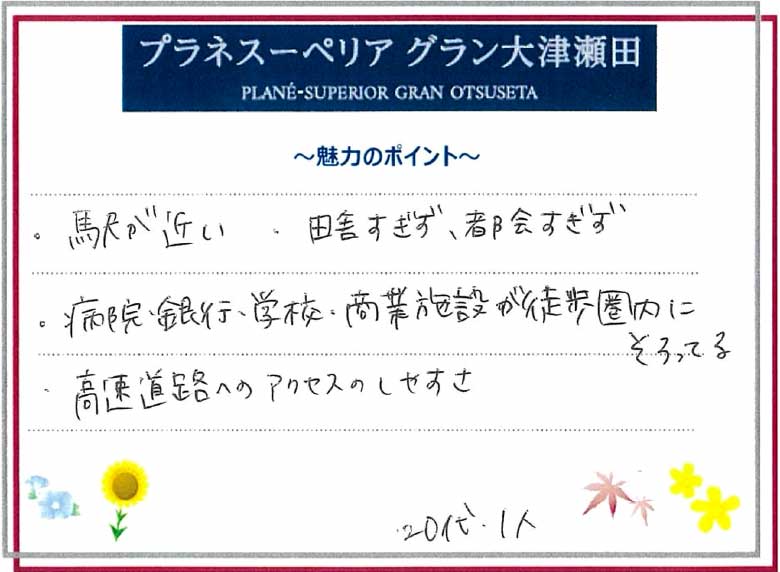 プラネスーペリア グラン大津瀬田
PLANÉ-SUPERIOR GRAN OTSUSETA
～魅力のポイント～
・駅が近い ・田舎すぎず、都会すぎず
・病院、銀行、学校、商業施設が徒歩圏内に
そろってる
・高速道路へのアクセスのしやすさ
20代・1人